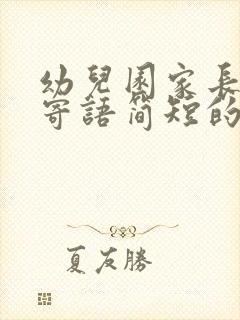 幼兒園家長
寄語简短的
夏友勝